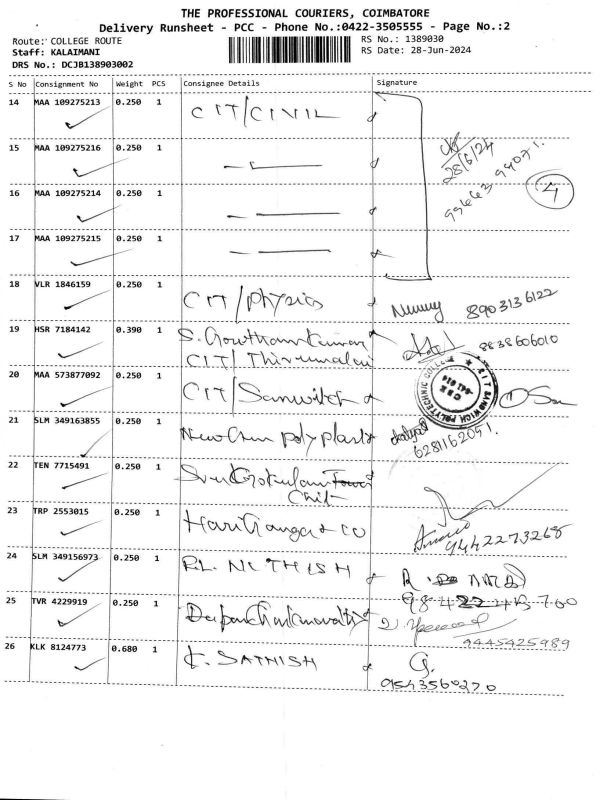 THE PROFESSIONAL COURIERS, COIMBATORE
Delivery Runsheet - PCC - Phone No.:0422-3505555 - Page No.:2
Route: COLLEGE ROUTE
RS No.: 1389030
Staff: KALAIMANI
RS Date: 28-Jun-2024
DRS No.: DCJB138903002
S No Consignment No Weight PCS Consignee Details Signature
14 MAA 109275213 0.250 1 CIT/CIVIL
15 MAA 109275216 0.250 1
28/6/24
99663 94071.
16 MAA 109275214 0.250 1
4
17 MAA 109275215 0.250 1
18 VLR 1846159 0.250 1 CIT/Physics
8903136122
19 HSR 7184142 0.390 1 S. Gowtham Kumar
CIT/Thirumalai
8838606010
20 MAA 573877092 0.250 1 CIT/Sanwitch
C I T SANDWICH POLYTECHNIC COLLEGE
21 SLM 349163855 0.250 1 New Chem Polyplasts
6281162051.
22 TEN 7715491 0.250 1 Sree Gokulam
Chit
23 TRP 2553015 0.250 1 Hari Ganga & CO
9442273268
24 SLM 349156973 0.250 1 PL. NITHISH
25 TVR 4229919 0.250 1
9445425989
26 KLK 8124773 0.680 1 K. SATHISH G.
9543560270